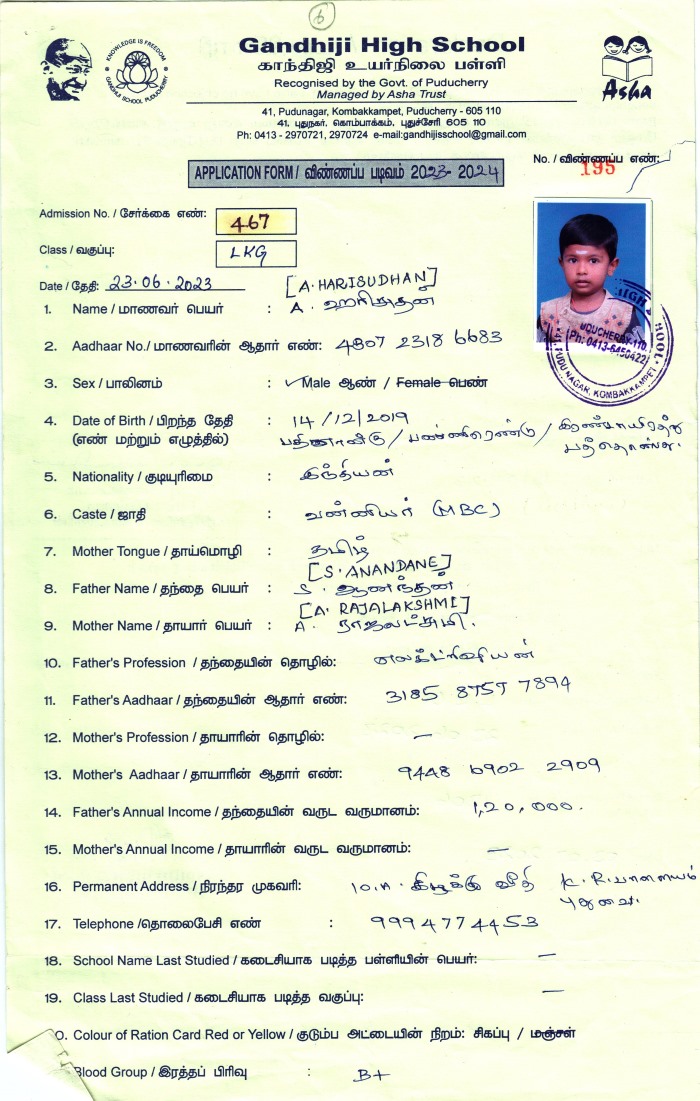 6
Gandhiji High School
காந்திஜி உயர்நிலை பள்ளி
Recognised by the Govt. of Puducherry
Managed by Asha Trust
KNOWLEDGE IS FREEDOM
GANDHIJI SCHOOL PUDUCHERRY
Asha
41, Pudunagar, Kombakkampet, Puducherry - 605 110
41, புதுநகர், கொம்பாக்கம், புதுச்சேரி 605 110
Ph: 0413 - 2970721, 2970724 e-mail:gandhijisschool@gmail.com
No. / விண்ணப்ப எண்:
195
APPLICATION FORM / விண்ணப்ப படிவம் 2023- 2024
Admission No. / சேர்க்கை எண்: 467
Class / வகுப்பு: LKG
Date / தேதி: 23.06.2023
[A.HARISUDHAN]
1. Name / மாணவர் பெயர் : A. ஹரிசுதன்
2. Aadhaar No./ மாணவரின் ஆதார் எண்: 4807 2318 6683
3. Sex / பாலினம் : ✓Male ஆண் / Female பெண்
4. Date of Birth / பிறந்த தேதி : 14/12/2019
(எண் மற்றும் எழுத்தில்) பதினான்கு / பன்னிரெண்டு / இரண்டாயிரத்து
பத்தொன்பது.
5. Nationality / குடியுரிமை : இந்தியன்
6. Caste / ஜாதி : வன்னியர் (MBC)
7. Mother Tongue / தாய்மொழி : தமிழ்
[S.ANANDANE]
8. Father Name / தந்தை பெயர் : S. ஆனந்தன்.
[A. RAJALAKSHMI]
9. Mother Name / தாயார் பெயர் : A. ராஜலட்சுமி.
10. Father's Profession / தந்தையின் தொழில்: எலக்ட்ரிஷியன்
11. Father's Aadhaar / தந்தையின் ஆதார் எண்: 3185 8757 7894
12. Mother's Profession / தாயாரின் தொழில்: —
13. Mother's Aadhaar / தாயாரின் ஆதார் எண்: 9448 6902 2909
14. Father's Annual Income / தந்தையின் வருட வருமானம்: 1,20,000.
15. Mother's Annual Income / தாயாரின் வருட வருமானம்: —
16. Permanent Address / நிரந்தர முகவரி: 10.A. கிழக்கு வீதி K.R.பாளையம்
புதுவை.
17. Telephone /தொலைபேசி எண் : 9994774453
18. School Name Last Studied / கடைசியாக படித்த பள்ளியின் பெயர்: —
19. Class Last Studied / கடைசியாக படித்த வகுப்பு: —
0. Colour of Ration Card Red or Yellow / குடும்ப அட்டையின் நிறம்: சிகப்பு / மஞ்சள்
Blood Group / இரத்தப் பிரிவு : B+